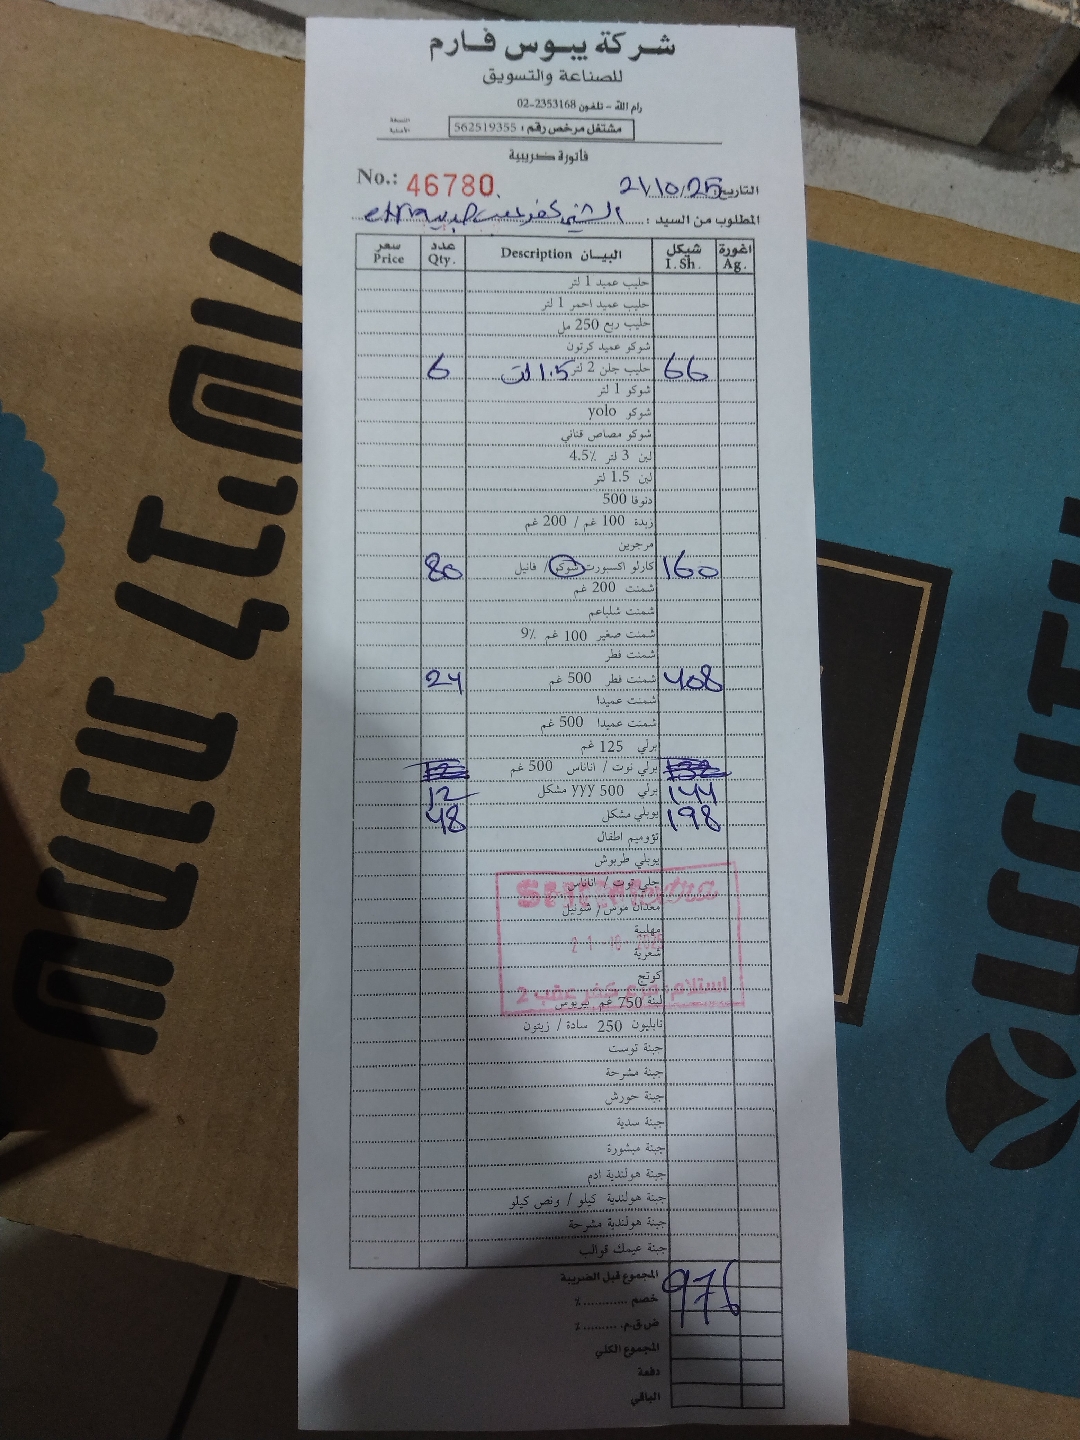 شركة يبوس فارم
للصناعة والتسويق
رام الله - تلفون 2353168-02
مشتغل مرخص رقم : 562519355
النسخة الأصلية
فاتورة ضريبية
No.: 46780
التاريخ 21/10/25
المطلوب من السيد :
سعر Price عدد Qty. البيـــان Description شيكل I.Sh. اغورة Ag.
حليب عميد 1 لتر
حليب عميد احمر 1 لتر
حليب ربع 250 مل
شوكو عميد كرتون
6 حليب جلن 2 لتر 1.5 لتر 66
شوكو 1 لتر
شوكو yolo
شوكو مصاص قناني
لبن 3 لتر 4.5٪
لبن 1.5 لتر
دنوفا 500
زبدة 100 غم / 200 غم
مرجرين
80 كارلو اكسبورت شوكو / فانيل 160
شمنت 200 غم
شمنت شلباعم
شمنت صغير 100 غم 9٪
شمنت فطر
24 شمنت فطر 500 غم 408
شمنت عميدا
شمنت عميدا 500 غم
برلي 125 غم
برلي توت / اناناس 500 غم
12 برلي 500 yyy مشكل 144
48 يوبلي مشكل 198
تؤوميم اطفال
يوبلي طربوش
جلي توت / اناناس
معدان موس / شونيل
مهلبية
شعرية
كوتج
لبنة 750 غم يبوس
نابليون 250 سادة / زيتون
جبنة توست
جبنة مشرحة
جبنة حورش
جبنة سدية
جبنة مبشورة
جبنة هولندية ادم
جبنة هولندية كيلو / ونص كيلو
جبنة هولندية مشرحة
جبنة عيمك قوالب
استلام فرع كفر عقب 2
المجموع قبل الضريبة 976
خصم ............ ٪
ض.ق.م. ......... ٪
المجموع الكلي
دفعة
الباقي